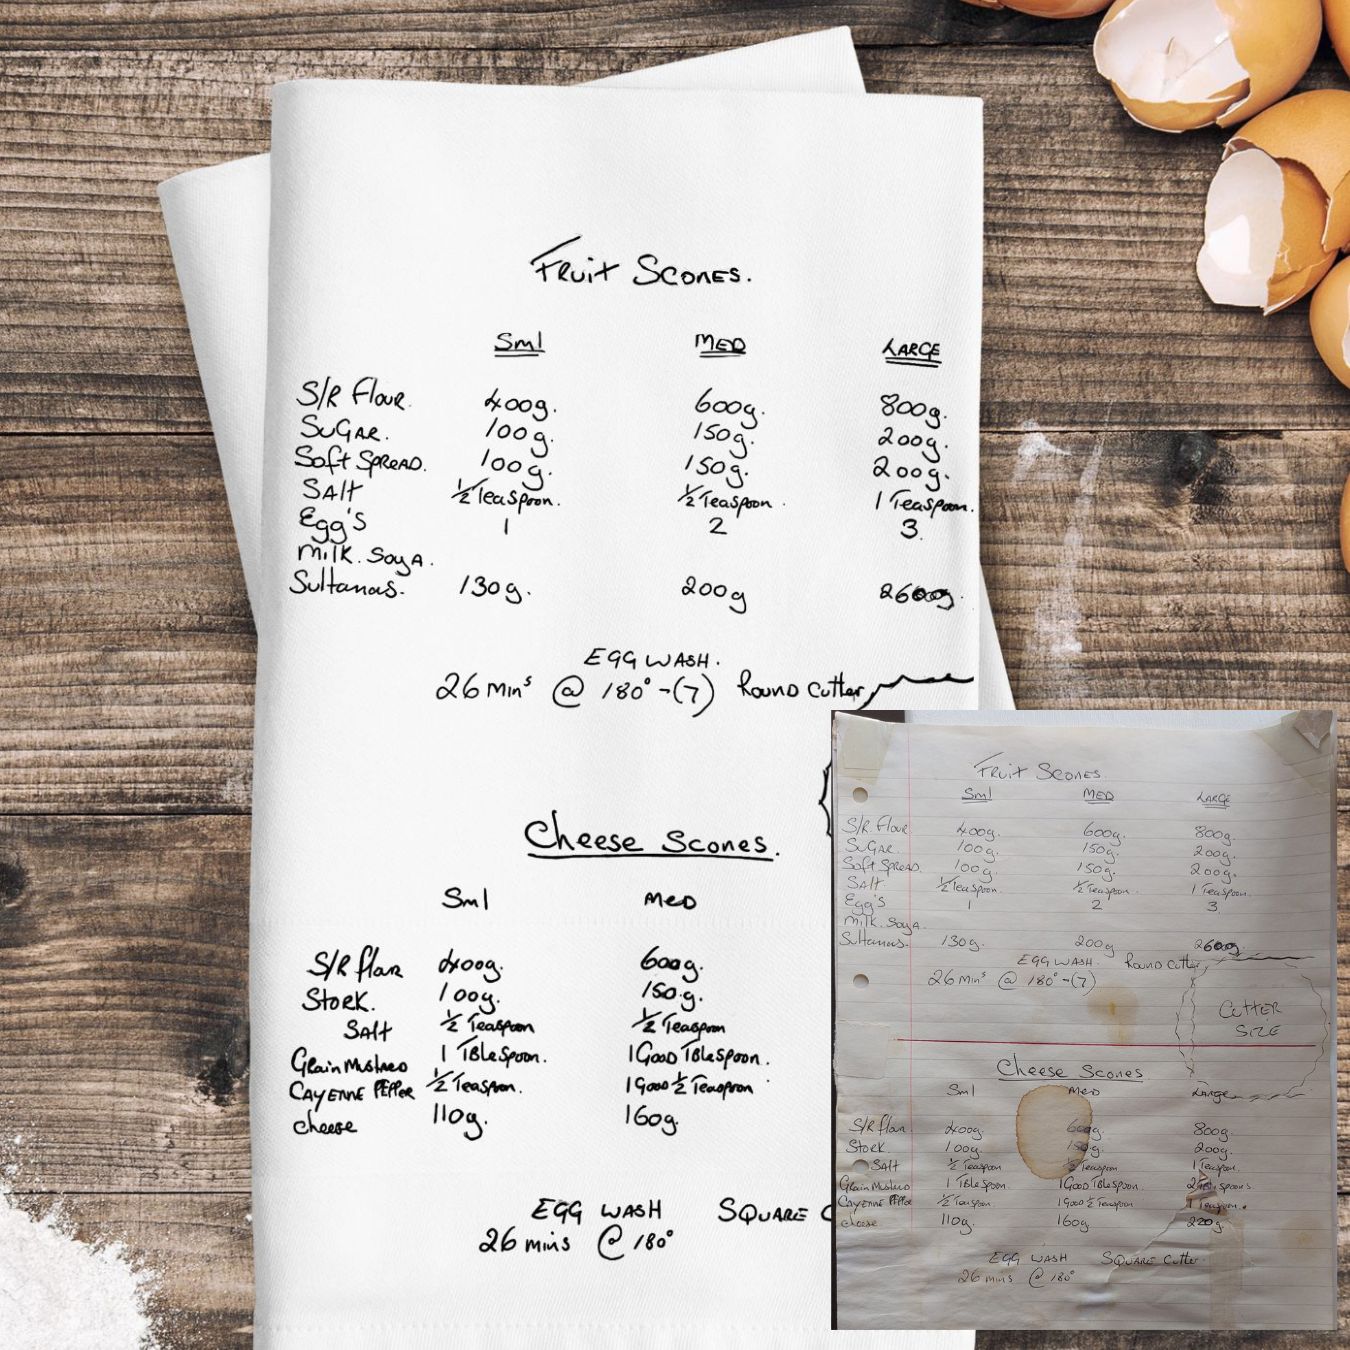 Fruit Scones.
Sml MED LARGE
S/R Flour. 400g. 600g. 800g.
SuGAR. 100g. 150g. 200g.
Soft SPREAD. 100g. 150g. 200g.
SAlt 1/2 Teaspoon. 1/2 Teaspoon. 1 Teaspoon.
Egg's 1 2 3.
Milk. SoyA.
Sultanas. 130g. 200g 260g.
EGG WASH.
26 Mins @ 180° -(7) Round Cutter
Cheese Scones.
Sml MED
S/R flour 400g. 600g.
Stork. 100g. 150g.
SAlt 1/2 Teaspoon 1/2 Teaspoon
Grain Mustard 1 TBleSpoon. 1 Good TBleSpoon.
CAyEnne PEPPer 1/2 Teaspoon. 1 Good 1/2 Teaspoon
cheese 110g. 160g.
EGG WASH SQUARE C
26 mins @ 180°
Fruit Scones.
Sml MED LARGE
S/R Flour 400g. 600g. 800g.
SuGAR. 100g. 150g. 200g.
Soft SPREAD. 100g. 150g. 200g.
SAlt 1/2 Teaspoon. 1/2 Teaspoon. 1 Teaspoon.
Egg's 1 2 3.
Milk. SoyA.
Sultanas. 130g. 200g 260g.
EGG WASH. Round Cutter
26 Mins @ 180° -(7)
CUTTER
SIZE
Cheese Scones
Sml MED Large
S/R flour. 400g. 600g. 800g.
Stork. 100g. 150g. 200g.
SAlt 1/2 Teaspoon 1/2 Teaspoon 1 Teaspoon.
Grain Mustard 1 TBleSpoon. 1 Good TBleSpoon. Spoons
CAyEnne PEPPer 1/2 Teaspoon 1 Good 1/2 Teaspoon 1 Teaspoon.
cheese 110g. 160g. 220g.
EGG WASH SQUARE Cutter
26 mins @ 180°